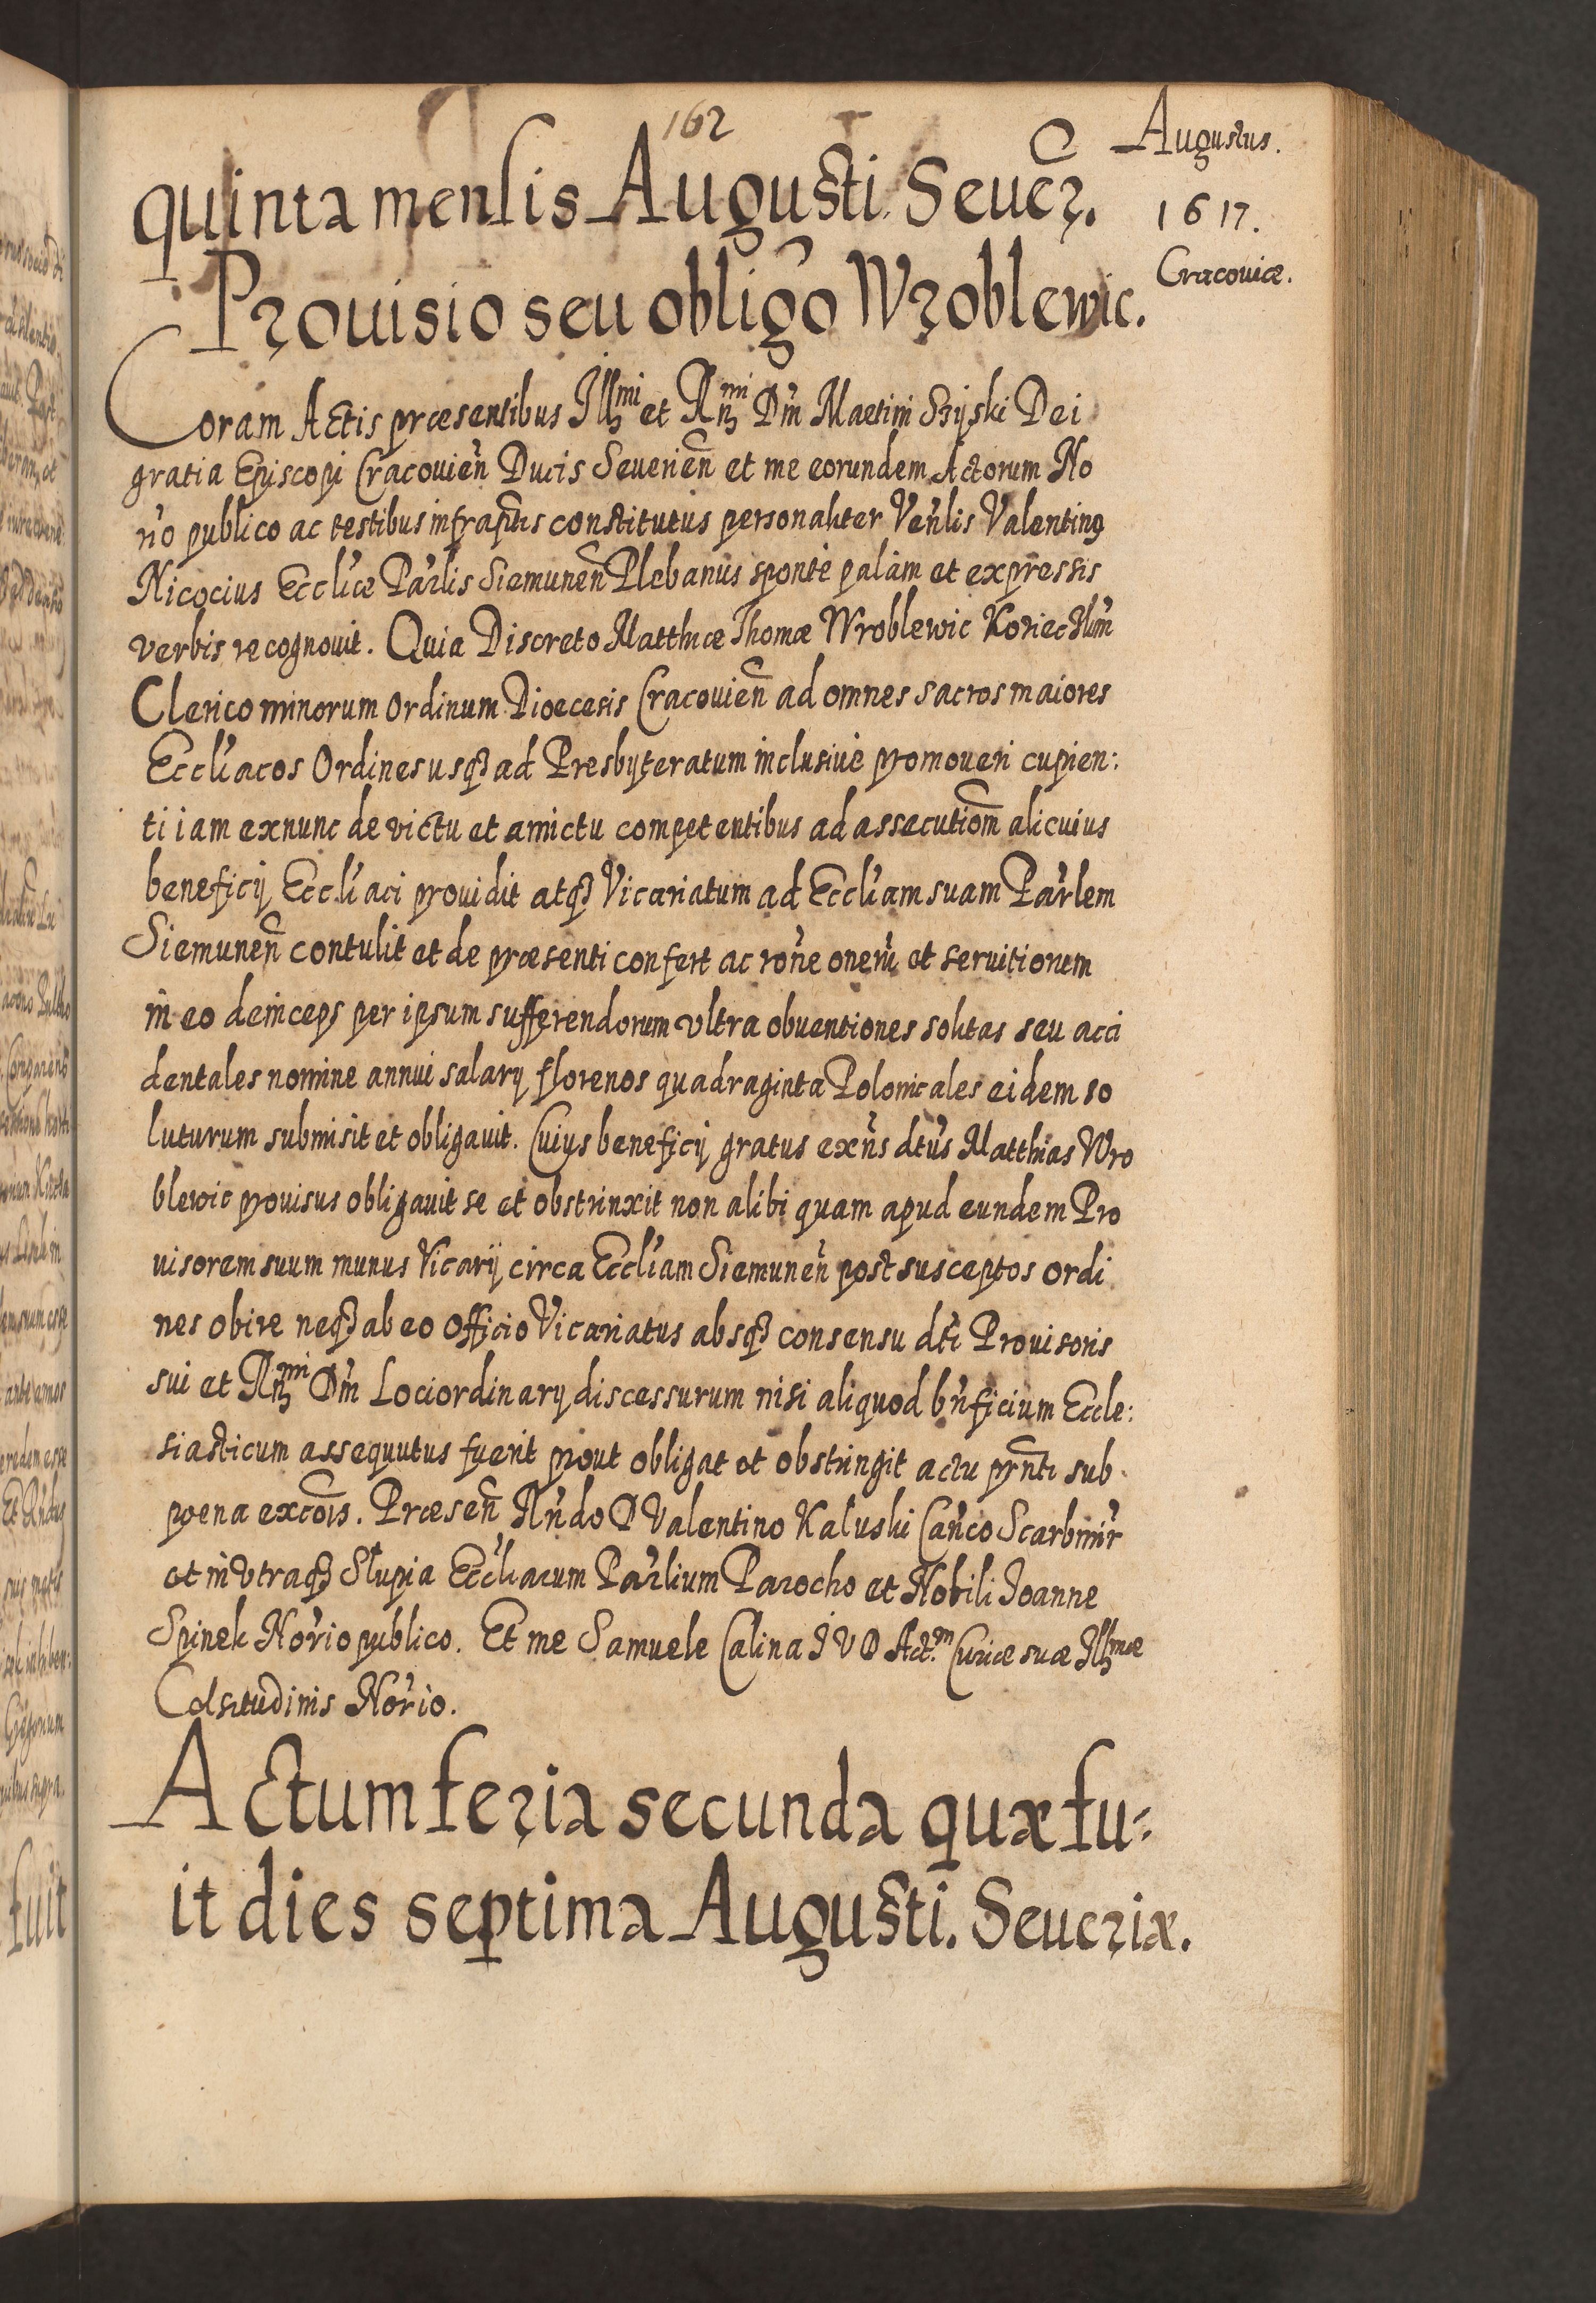 162
Augustus.
1617.
Cracouiæ.
quinta mensis Augusti. Seuer̃.
Prouisio seu obligo͂ Wroblewic.
Coram Actis præsentibus Illmi et Rmi Dm̃ Martini Szyski Dei
gratia Episcopi Cracouien̄ Ducis Seuerien̄ et me eorundem Actorum No
rio publico ac testibus infraptis constitutus personaliter Venlis Valentinus
Nicocius Eccliæ Parlis Siemunen̄ Plebanus sponte palàm et expressis
verbis recognouit. Quia Discreto Matthiæ Thomæ Wroblewic
Clerico minorum Ordinum Diœcesis Cracouien̄ ad omnes sacros maiores
Eccliacos Ordines usqȝ ad Presbyteratum inclusiuè promoueri cupien:
ti iam exnunc de victu et amictu competentibus ad assecutiom̄ alicuius
beneficij Eccliaci prouidit atqȝ Vicariatum ad Eccliam suam Parlem
Siemunen̄ contulit et de præsenti confert ac rone onerũ et seruitiorum
in eo deinceps per ipsum sufferendorum vltra obuentiones solitas seu acci
dentales nomine annui salarij florenos quadraginta Polonicales eidem so
luturum submisit et obligauit. Cuius beneficij gratus exn̄s dtus Matthias Wro
blewic prouisus obligauit se et obstrinxit non alibi quam apud eundem Pro
uisorem suum munus Vicarij circa Eccliam Siemunen̄ post susceptos ordi
nes obire neqȝ ab eo Officio Vicariatus absqȝ consensu dti Prouisoris
sui et Rmi Dm̃ Lociordinarij discessurum nisi aliquod bn̄ficium Eccle:
siasticum assequutus fuerit prout obligat et obstringit actu pn̄ti sub
pœna excōis. Præsen̄ Rn̄do D Valentino Kaluski Can̄co Scarbmir̄
et in Vtraqȝ Słupia Eccliarum Parlium Parocho et Nobili Joanne
Spinek Norio publico. Et me Samuele Calina J V D Act.m Curiæ suæ Illmæ
Celsitudinis Norio.
Actum feria secunda quæ fu:
it dies septima Augusti. Seueriæ.